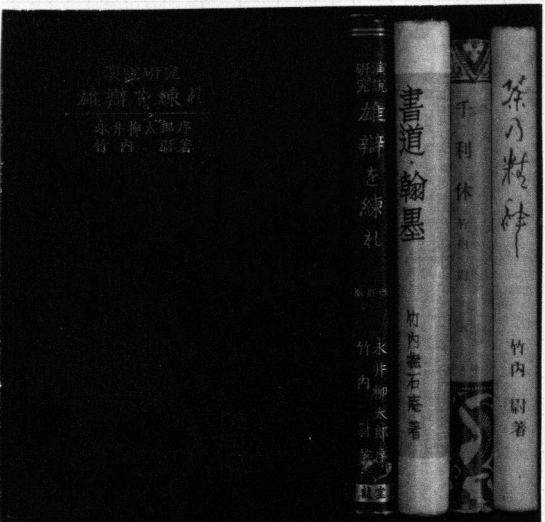 演説研究
雄辯を練れ
永井柳太郎序
竹内 尉著
演説
研究
雄辯を練れ
永井柳太郎序
竹内 尉著
書道・翰墨
竹内撫石庵著
千利休
竹内
茶の精神
竹内 尉著